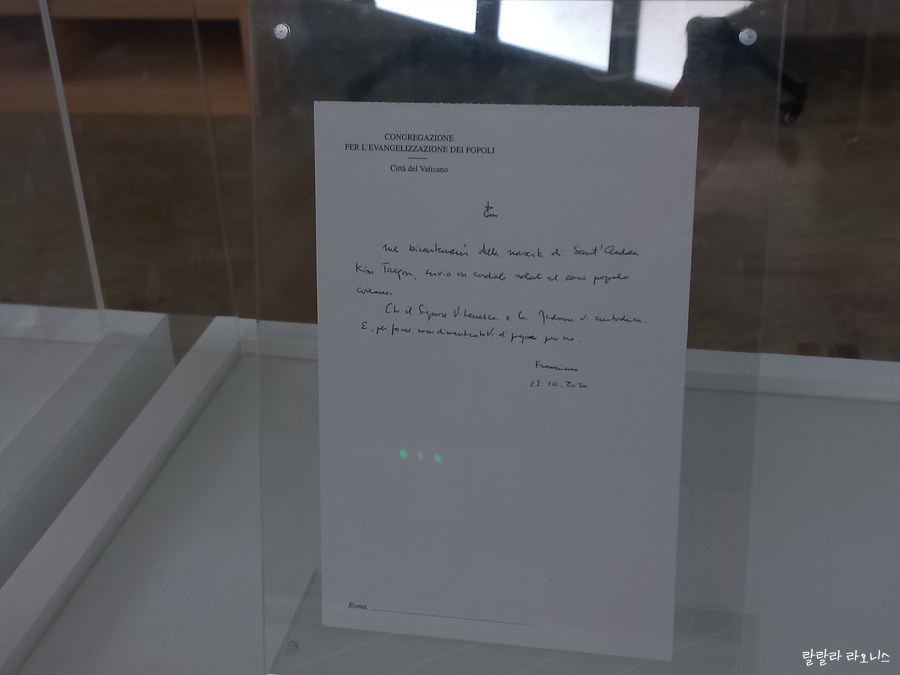 CONGREGAZIONE
PER L'EVANGELIZZAZIONE DEI POPOLI
Città del Vaticano
nel bicentenario della nascita di Sant'Andrea
Kim Taegon, invio un cordiale saluto al caro popolo
coreano.
Che il Signore Vi benedica e la Madonna Vi custodisca.
E, per favore, non dimenticateVi di pregare per me.
Francesco
23.10.2020
Roma,
랄랄라 라오니스